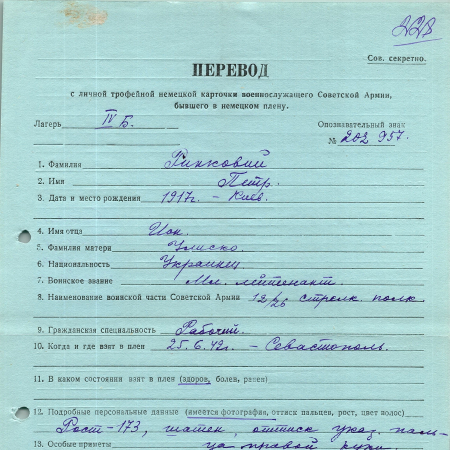 228
Сов. секретно.
ПЕРЕВОД
с личной трофейной немецкой карточки военнослужащего Советской Армии,
бывшего в немецком плену.
Лагерь IV Б. Опознавательный знак
№ 202957.
1. Фамилия Ринковий
2. Имя Петр.
3. Дата и место рождения 1917г. - Киев.
4. Имя отца Ион.
5. Фамилия матери Улиско.
6. Национальность Украинец
7. Воинское звание Мл. лейтенант.
8. Наименование воинской части Советской Армии 12/26 стрелк. полк.
9. Гражданская специальность Рабочий.
10. Когда и где взят в плен 25.6.42г. - Севастополь.
11. В каком состоянии взят в плен (здоров, болен, ранен)
12. Подробные персональные данные (имеется фотография, оттиск пальцев, рост, цвет волос)
Рост-173, шатен, оттиск указ. паль-
13. Особые приметы ца правой руки.